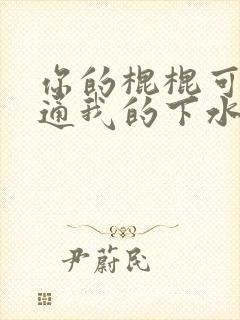 你的棍棍可
通我的下水
尹蔚民